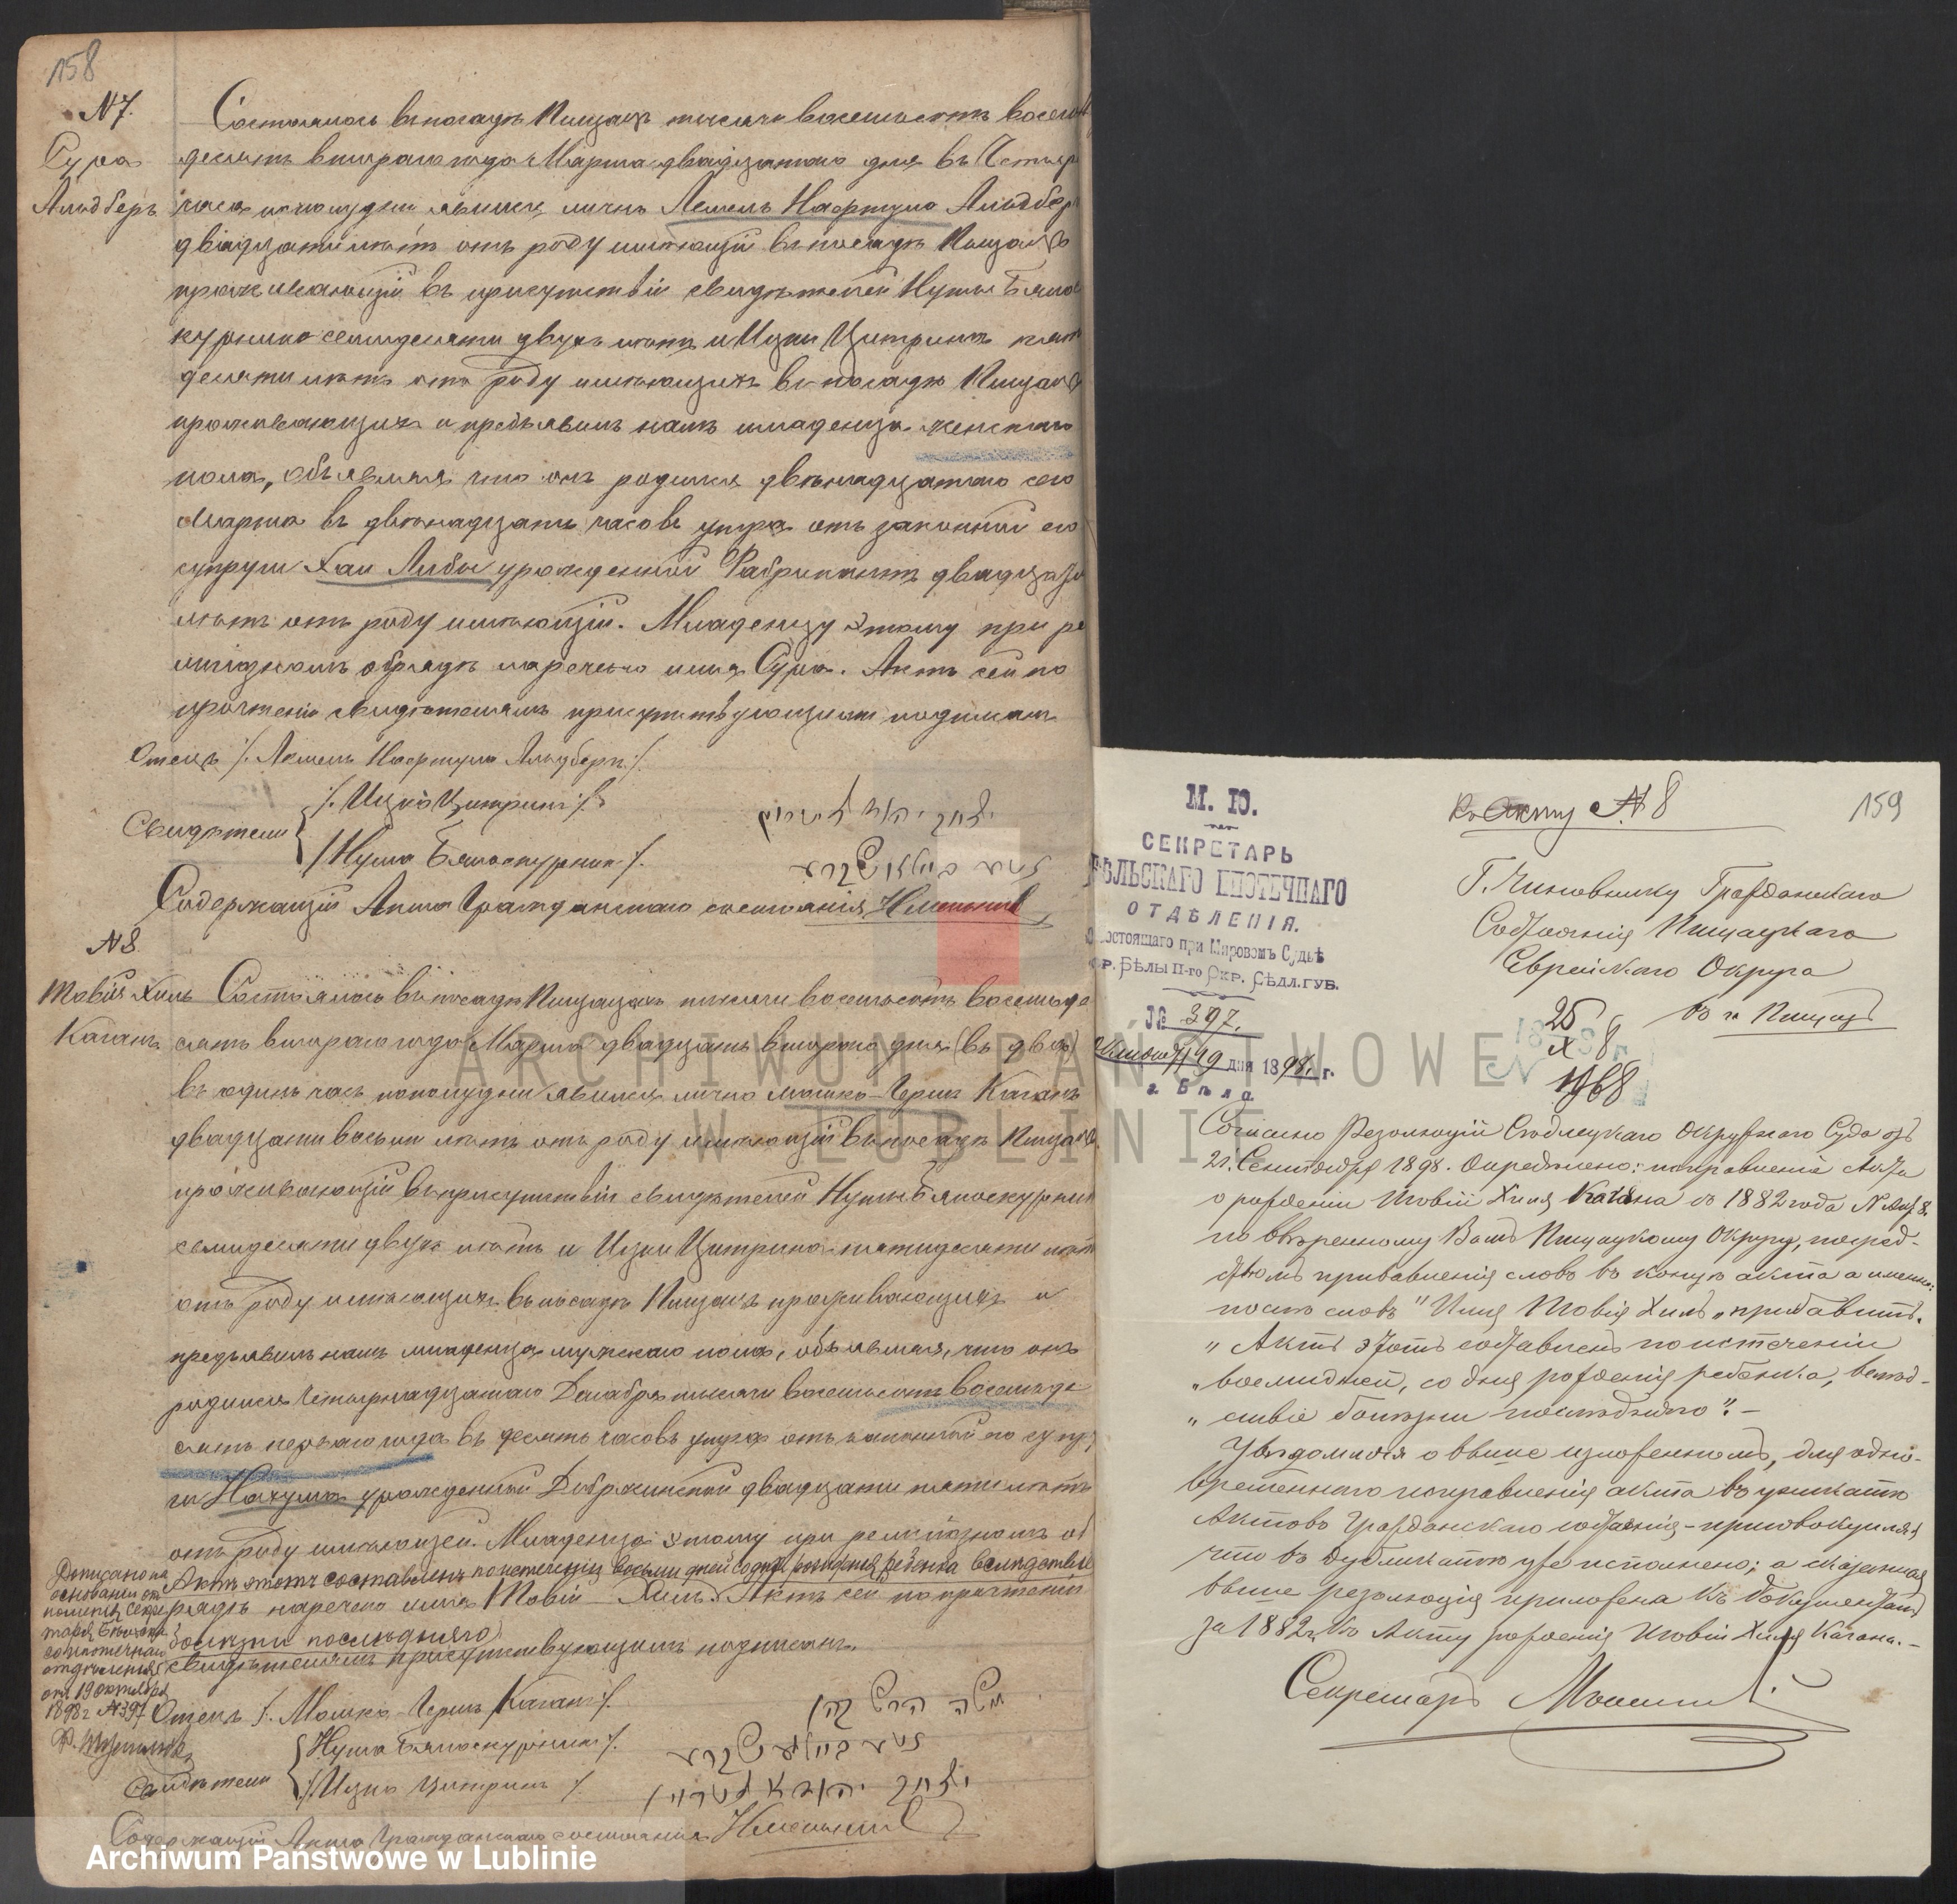 158
N7.
Сура
Альдберъ
Состоялось въ посадѣ Пищацъ тысяча восемьсотъ восемь
десятъ втораго года Марта двадцатаго дня въ Четыре
часа пополудни явился лично Лемель Нафтула Альдберъ
двадцати лѣтъ отъ роду имѣющій въ посадѣ Пищацъ
проживающій въ присутствіи свидѣтелей Нуты Бяло
курника семидесяти двухъ лѣтъ и Ицки Цитрина пяти
десяти лѣтъ отъ роду имѣющихъ въ посадѣ Пищацъ
проживающихъ и предъявилъ намъ младенца женскаго
пола, объявляя что онъ родился двѣнадцатаго сего
Марта въ двѣнадцать часовъ утра отъ законной его
супруги Хаи Либы урожденной Фабрикантъ двадцати
лѣтъ отъ роду имѣющій. Младенцу этому при ре
лигіозномъ обрядѣ наречено имя Сура. Актъ сей по
прочтеніи свидѣтелямъ присутствующимъ подписанъ
Отецъ /. Лемель Нафтула Альдберъ ./.
Свидѣтели
/. Ицко Цитринъ ./.
/. Нута Бялоскурникъ ./.
Содержащій Акты Гражданскаго состоянія
N8.
Товія Хиль
Каганъ
Состоялось въ посадѣ Пищацахъ тысяча восемьсотъ восемьде
сятъ втораго года Марта двадцать втораго дня (въ два)
въ одинъ часъ пополудни явился лично Мошко-Герш Каганъ
двадцати восьми лѣтъ отъ роду имѣющій въ посадѣ Пищацъ
проживающій въ присутствіи свидѣтелей Нуты Бялоскурника
семидесяти двухъ лѣтъ и Ицки Цитрина пятидесяти лѣтъ
отъ роду имѣющихъ въ посадѣ Пищацъ проживающихъ и
предъявилъ намъ младенца мужскаго пола, объявляя, что онъ
родился Четырнадцатаго Декабря тысяча восемьсотъ восемьде
сятъ перваго года въ десять часовъ утра отъ законной его супру
ги Нахумы урожденной Добржинской двадцати пяти лѣтъ
отъ роду имѣющей. Младенцу этому при религіозномъ об
Актъ этотъ составленъ по истеченіи восьми дней со дня рожденія ребенка вслѣдствіе
рядѣ наречено имя Товій Хиль. Актъ сей по прочтеніи
болѣзни послѣдняго
свидѣтелямъ присутствующимъ подписанъ.
Дописано на
основаніи от
ношенія Секре
таря Бѣльска
го ипотечнаго
отдѣленія
отъ 19 октября
1898 г. N397
Отецъ /. Мошко-Герш Каганъ ./.
משה הרש כהן
Свидѣтели
/. Нута Бялоскурникъ ./.
/. Ицко Цитринъ ./.
Содержащій Акты Гражданскаго состоянія
Archiwum Państwowe w Lublinie
ARCHIWUM PAŃSTWOWE
W LUBLINIE
М. Ю.
СЕКРЕТАРЬ
БѢЛЬСКАГО ИПОТЕЧНАГО
ОТДѢЛЕНІЯ.
Состоящаго при Мировомъ Судьѣ
гор. Бѣлы II-го Окр. Сѣдл. губ.
№ 397.
19 дня 1898 г.
г. Бѣла
Къ Акту N8
159
Г. Чиновнику Гражданскаго
Состоянія Пищацкаго
Еврейскаго Округа
въ п. Пищацъ
25
X 8
Согласно Резолюціи Сѣдлецкаго Окружнаго Суда отъ
21. Сентября 1898. Опредѣлено: исправленіе Акта
о рожденіи Товіи Хиля Кагана съ 1882 года N Акт. 8.
по ввѣренному Вамъ Пищацкому Округу, посред-
ствомъ прибавленія словъ въ концѣ акта а именно:
послѣ словъ "Имя Товія Хиль" прибавить.
"Актъ этотъ составленъ по истеченіи
"восьми дней, со дня рожденія ребенка, вслѣд-
"ствіе болѣзни послѣдняго". -
Увѣдомляя о выше изложенномъ, для одно-
временнаго исправленія акта въ уникатѣ
Актовъ Гражданскаго состоянія - присовокупляя
что въ дубликатѣ уже исполнено; а сказанная
выше резолюція приложена къ документамъ
за 1882 г. къ Акту рожденія Товіи Хиля Кагана. -
Секретарь